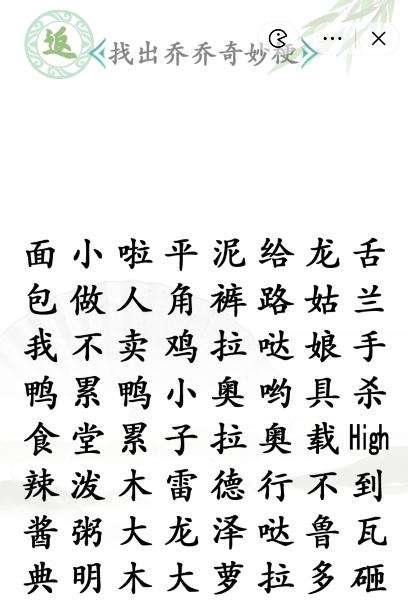 返
找出乔乔奇妙梗
面小啦平泥给龙舌
包做人角裤路姑兰
我不卖鸡拉哒娘手
鸭累鸭小奥哟具杀
食堂累子拉奥载High
辣泼木雷德行不到
酱粥大龙泽哒鲁瓦
典明木大萝拉多砸